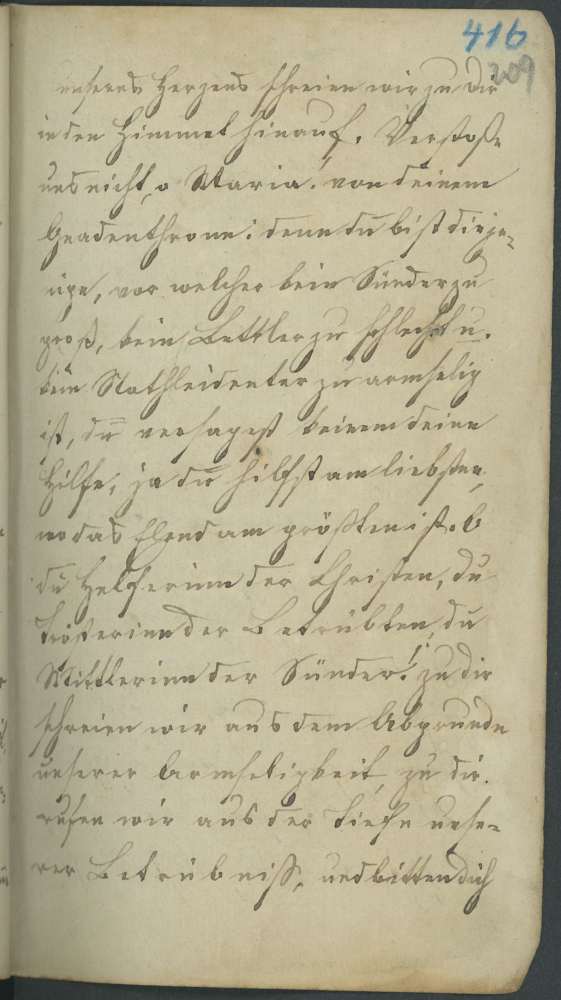 416
209
unseres Herzens schreien wir zu dir
in den Himmel hinauf. Verstoße
uns nicht, o Maria! von deinem
Gnadenthrone: denn du bist dieje-
nige, vor welcher kein Sünder zu
groß, kein Bettler zu schlecht u.
kein Nothleidenter zu armselig
ist, du versagest keinem deine
Hilfe, ja du hilfst am liebsten,
wo das Elend am größten ist. O
du Helferinn der Christen, du
Trösterinn der Betrübten, du
Mittlerinn der Sünder! zu dir
schreien wir aus dem Abgrunde
unserer Armseligkeit, zu dir
rufen wir aus der Tiefe unse-
rer Betrübniß, und bitten dich